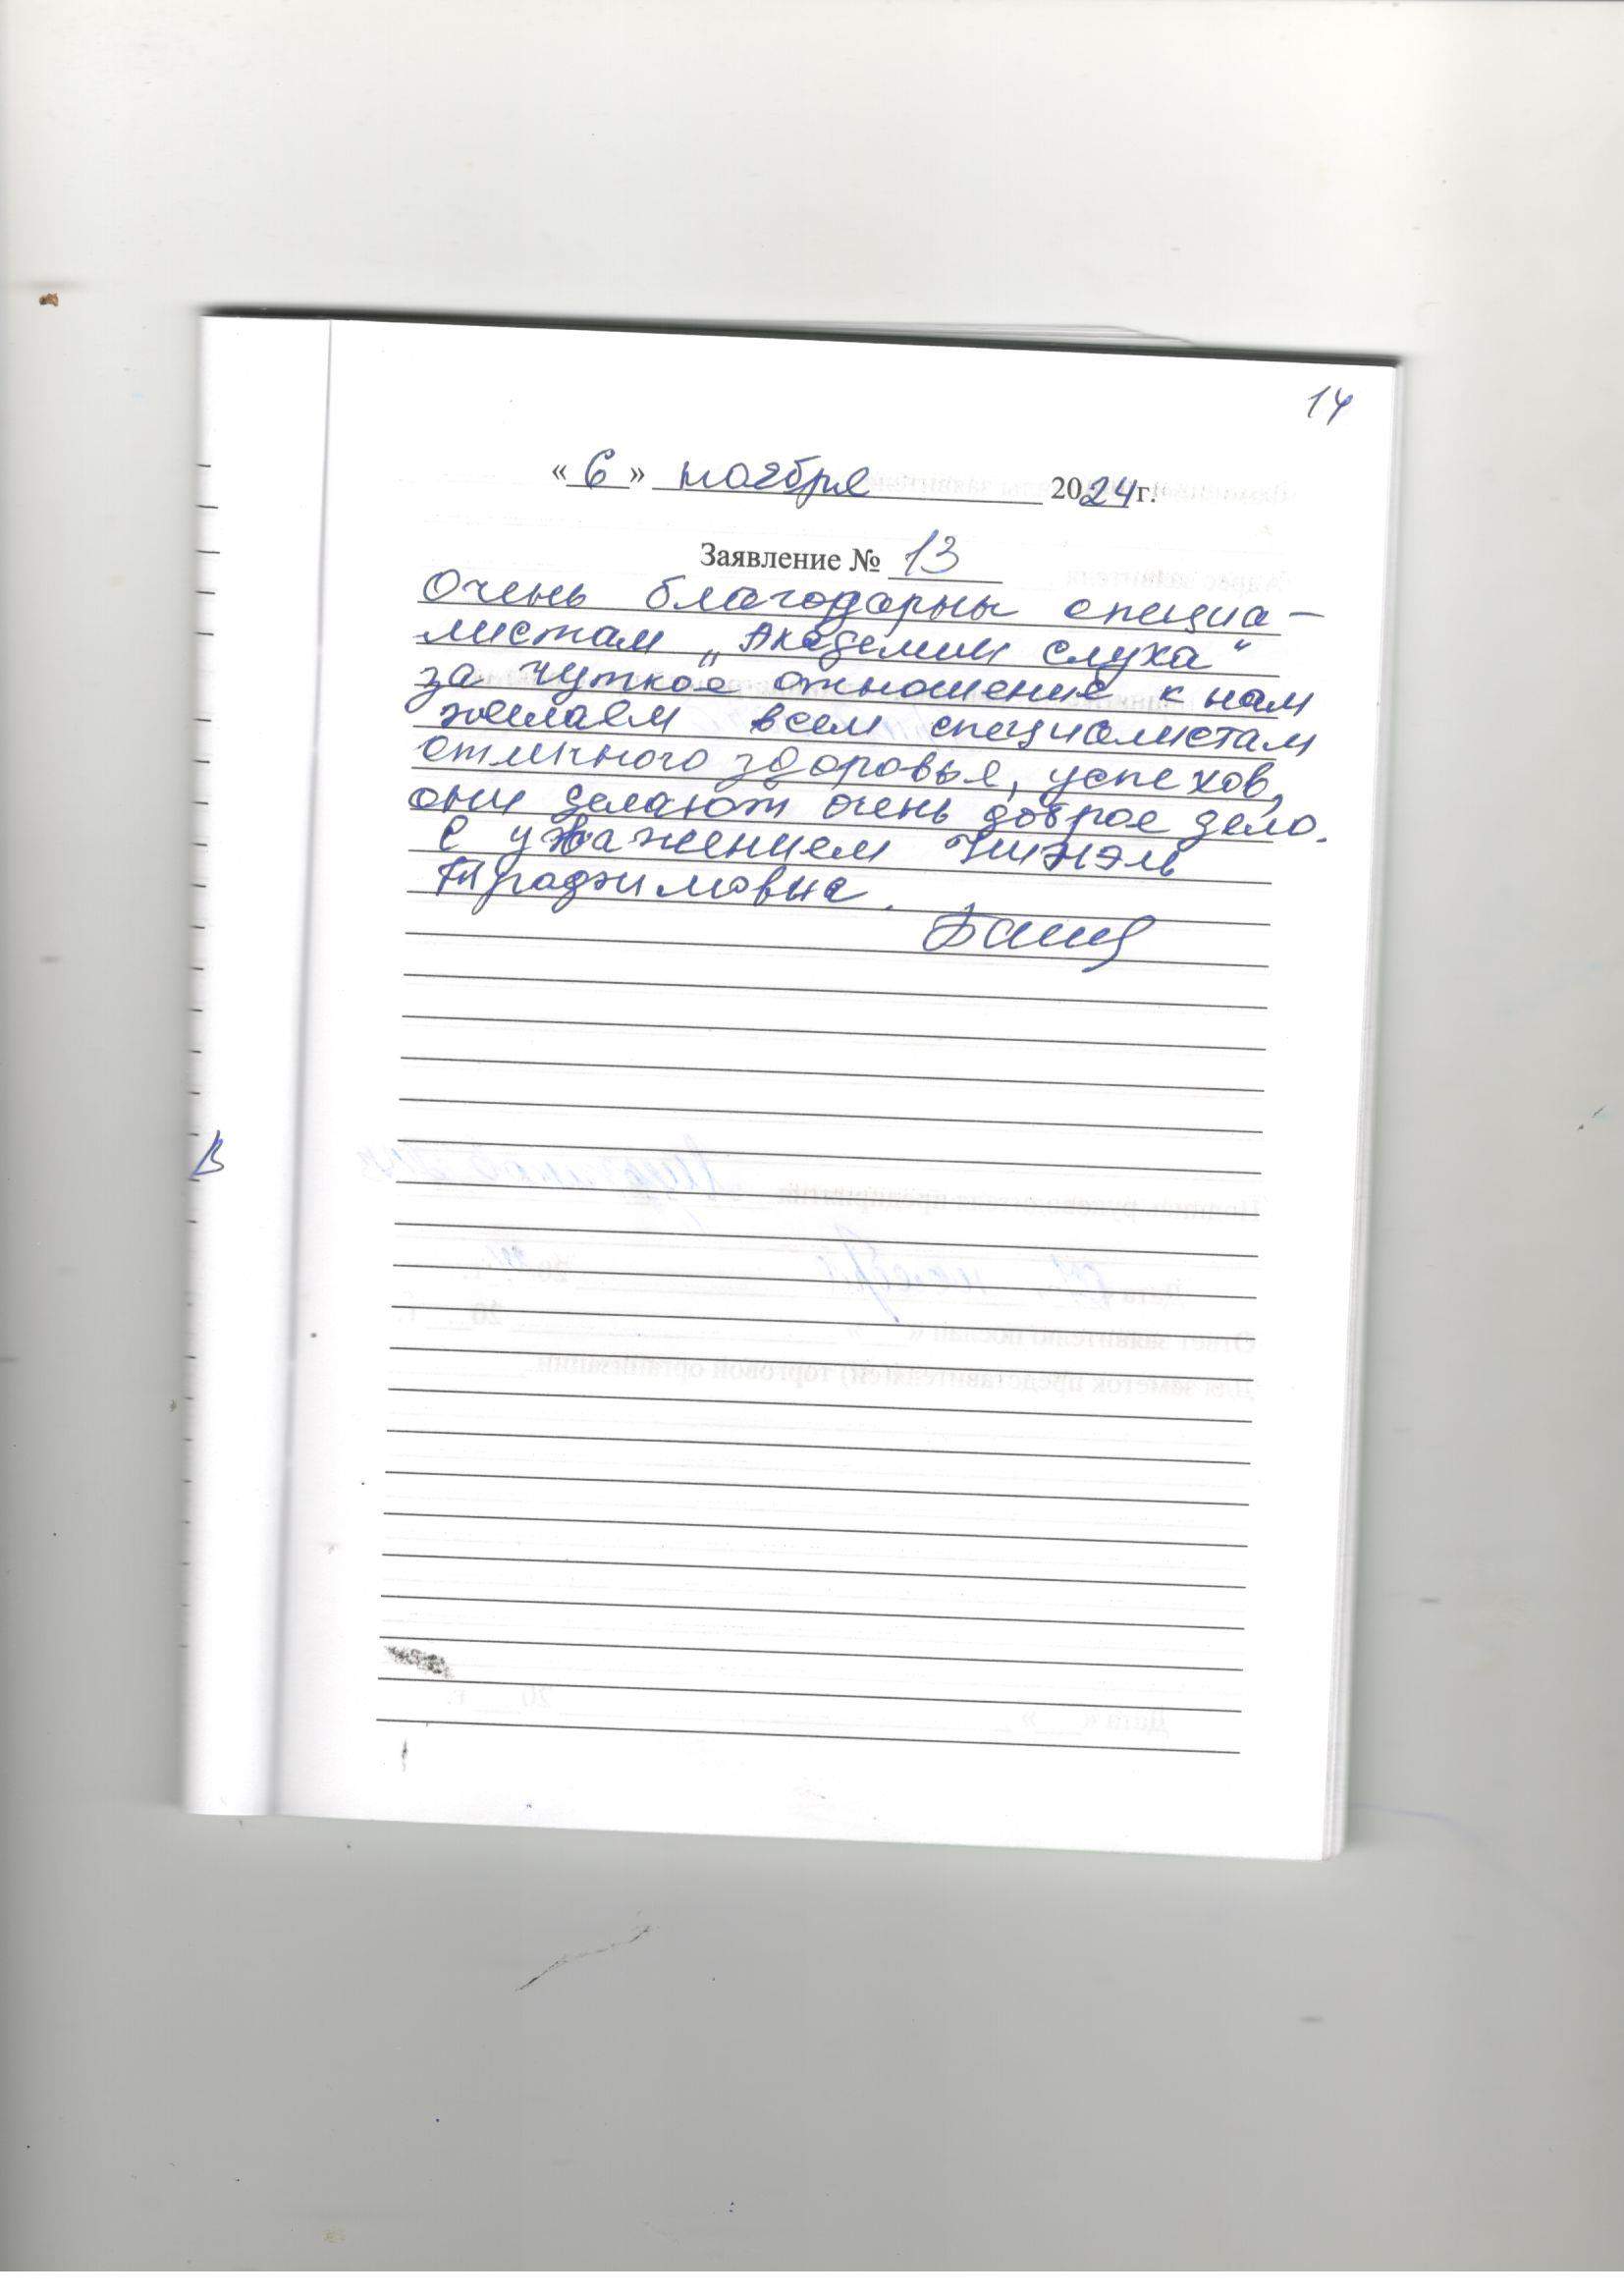 14
« 6 » ноября 2024г.
Заявление № 13
Очень благодарны специа-
листам „Академии слуха“
за чуткое отношение к нам
желаем всем специалистам
отличного здоровья, успехов,
они делают очень доброе дело.
С уважением
В